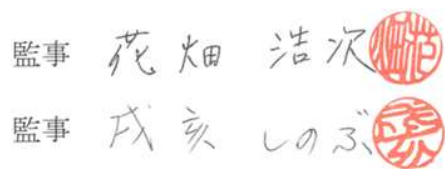 監事 花畑 浩次
監事 戌亥 しのぶ